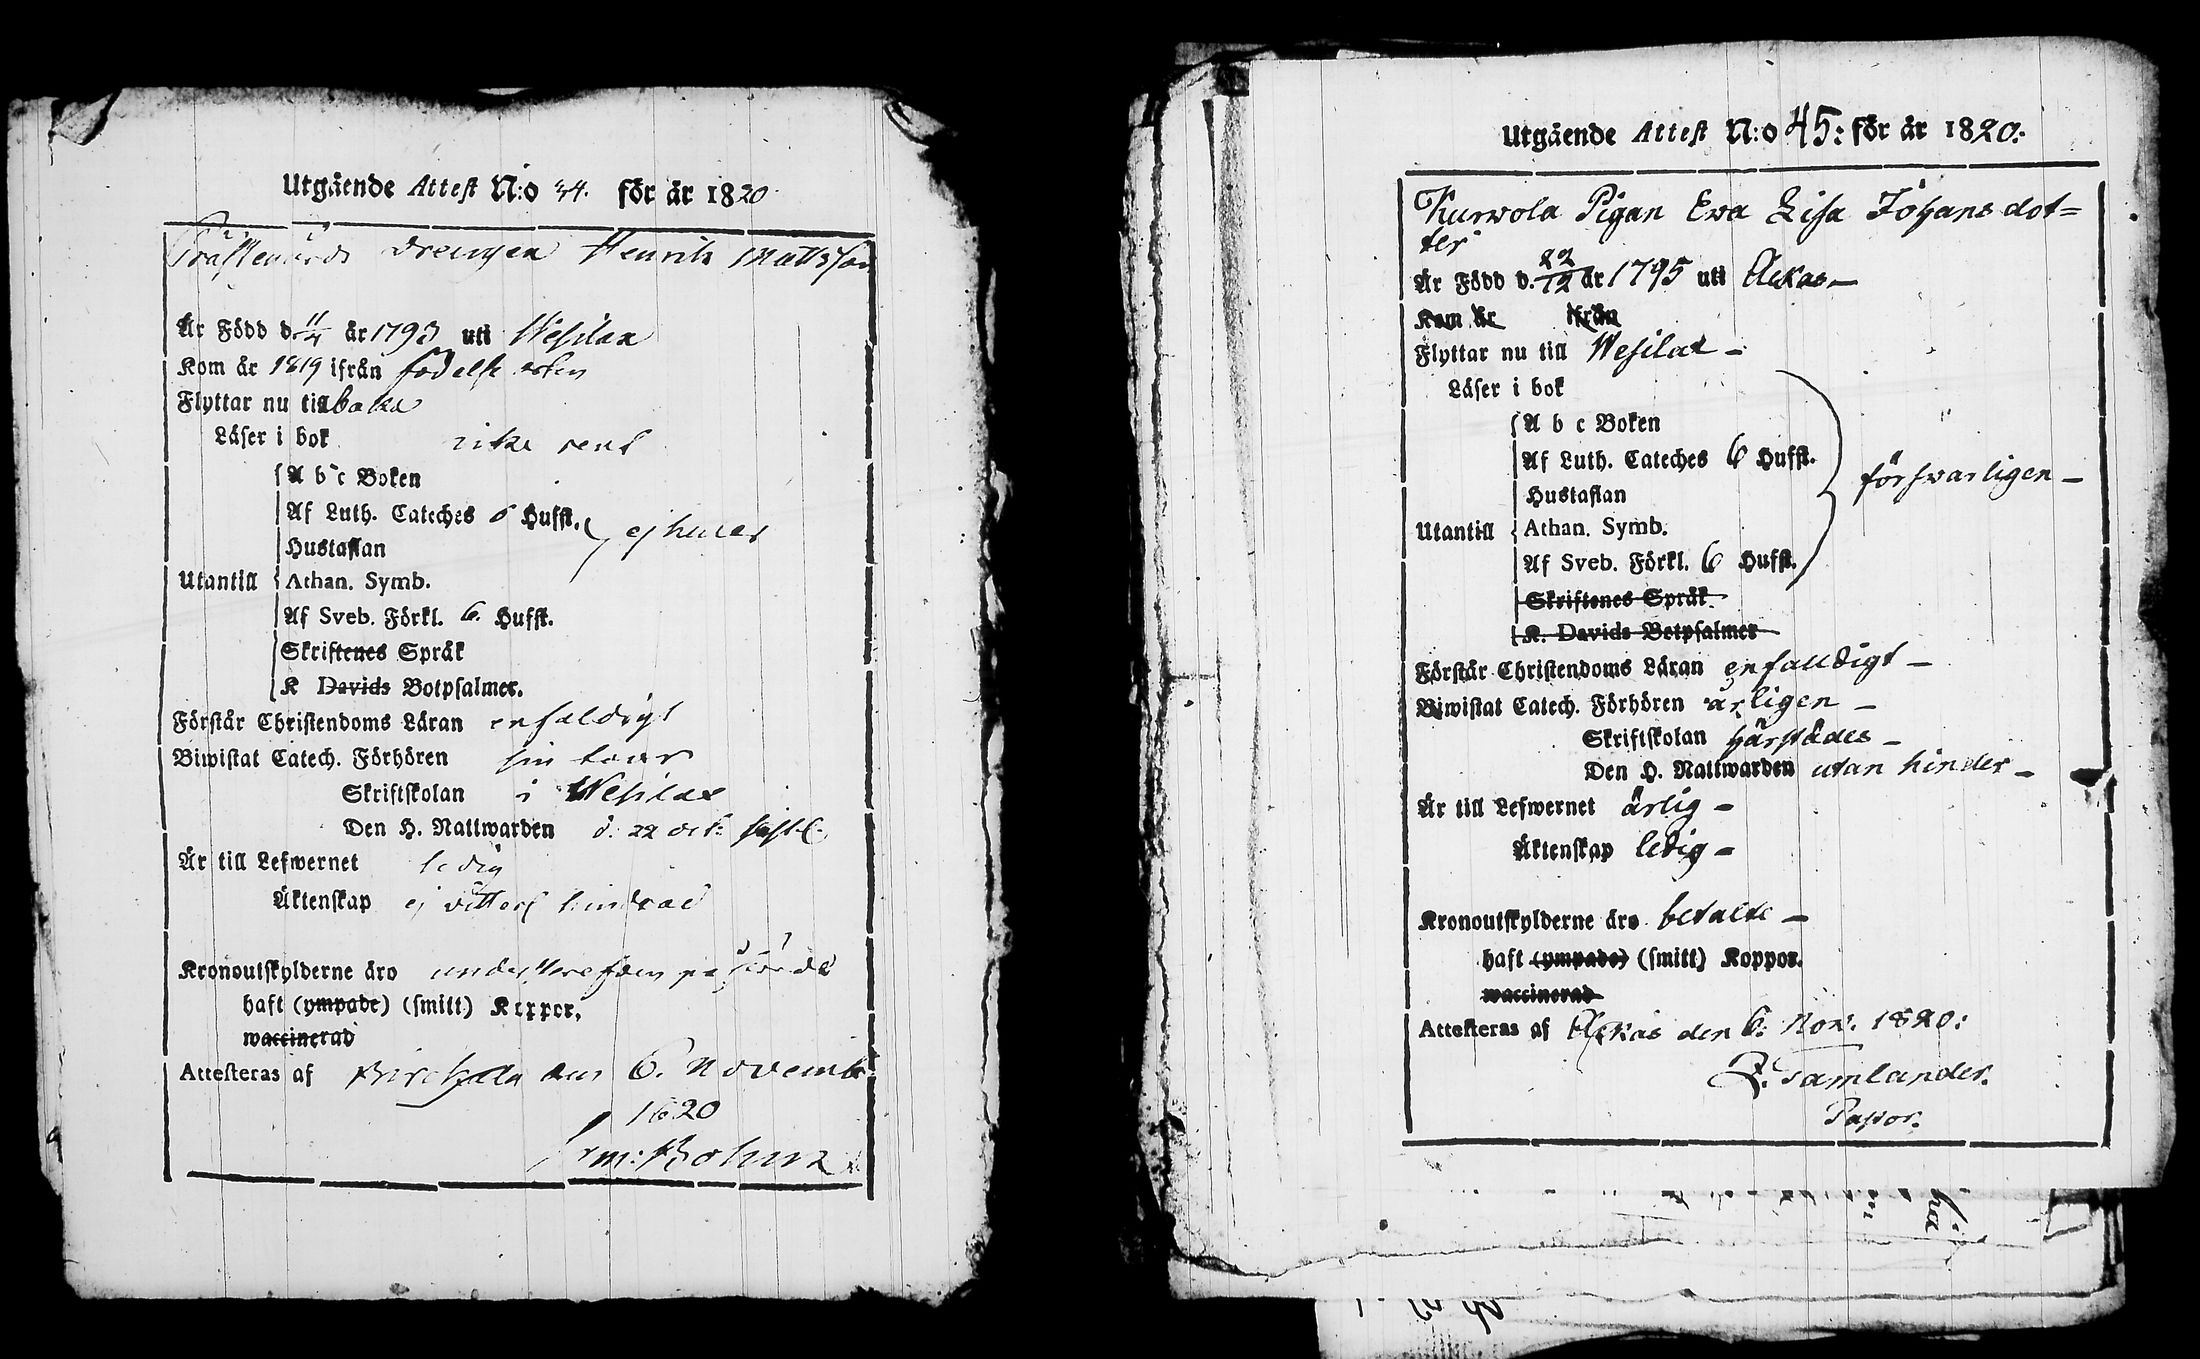 Utgående Attest N:o 34. för år 1820.
Prästegårds Drengen Henrik Mattsson
Är Född d. 11/4 år 1793 uti Wesilax
Kom år 1819 ifrån födelse soken
Flyttar nu tillbaka
Läser i bok icke rent
A b c Boken
Af Luth. Cateches 6 Hufst. ej heller
Hustaflan
Utantill Athan. Symb.
Af Sveb. Förkl. 6. Hufst.
Skriftenes Språk
K Davids Botpsalmer.
Förstår Christendoms Läran enfaldigt
Biwistat Catech. Förhören sin tour
Skriftskolan i Wesilax
Den H. Nattwarden d. 22 oct:
Är till Lefwernet ledig
Äktenskap ej vetterl hindrad
Kronoutskylderne äro
haft (ympade) (smitt) Koppor.
waccinerad
Attesteras af Birckala den 6. Novemb
1820
Bohm
Utgående Attest N:o 45: för år 1820.
Kurwola Pigan Ewa Lisa Johansdot=
ter
Är Född d. 22/12 år 1795 uti Ackas
Kom år ifrån
Flyttar nu till Wesilax
Läser i bok
A b c Boken
Af Luth. Cateches 6 Hufst.
Hustaflan
försvarligen
Utantill Athan. Symb.
Af Sveb. Förkl. 6 Hufst.
Skriftenes Språk
K. Davids Botpsalmer
Förstår Christendoms Läran enfalldigt
Biwistat Catech. Förhören årligen
Skriftskolan härstädes
Den H. Nattwarden utan hinder
Är till Lefwernet ärlig
Äktenskap ledig
Kronoutskylderne äro betalte
haft (ympade) (smitt) Koppor.
waccinerad
Attesteras af Ackas den 6: Nov. 1820:
Tamlander.
Pastor.